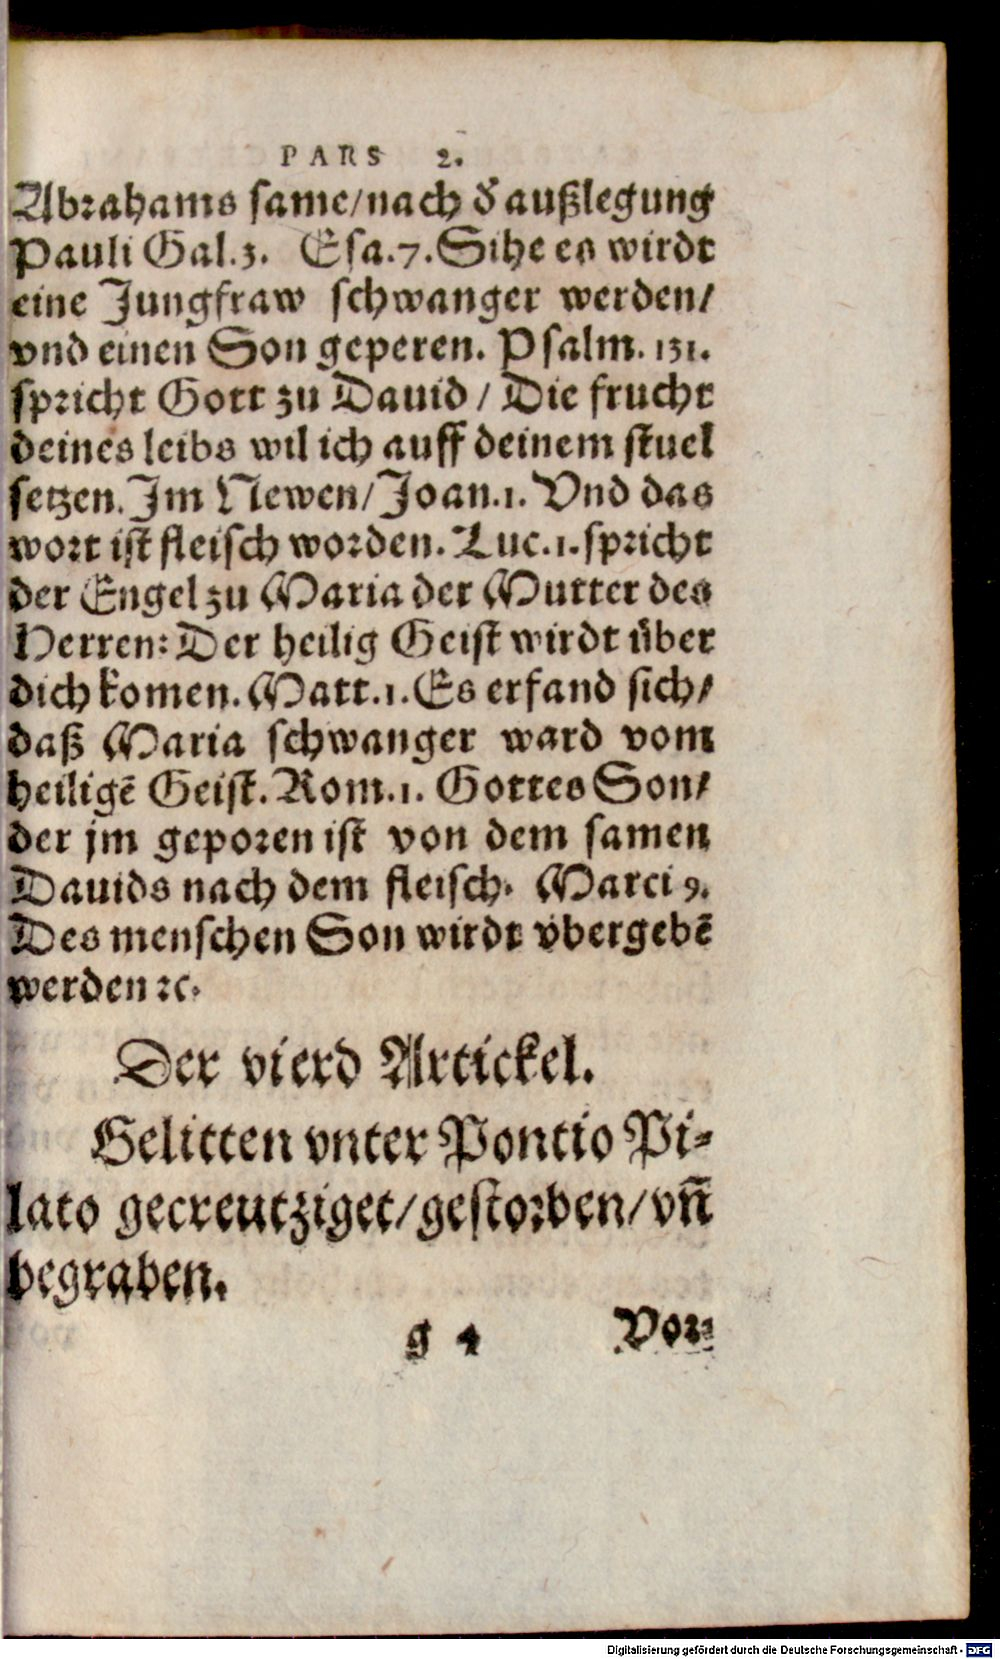 PARS 2.
Abrahams same/nach d̕ außlegung
Pauli Gal.3. Esa.7. Sihe es wirdt
eine Jungfraw schwanger werden/
vnd einen Son geperen. Psalm. 131.
spricht Gott zu Dauid / Die frucht
deines leibs wil ich auff deinem stuel
setzen. Im Newen/Joan.1. Vnd das
wort ist fleisch worden. Luc.1. spricht
der Engel zu Maria der Mutter des
Herren: Der heilig Geist wirdt über
dich komen. Matt.1. Es erfand sich/
daß Maria schwanger ward vom
heiligē Geist. Rom.1. Gottes Son/
der jm geporen ist von dem samen
Dauids nach dem fleisch. Marci 9.
Des menschen Son wirdt vbergebē
werden ꝛc.
Der vierd Artickel.
Gelitten vnter Pontio Pi-
lato gecreutziget/gestorben/vn̄
begraben.
g 4 Vor-
Digitalisierung gefördert durch die Deutsche Forschungsgemeinschaft - DFG